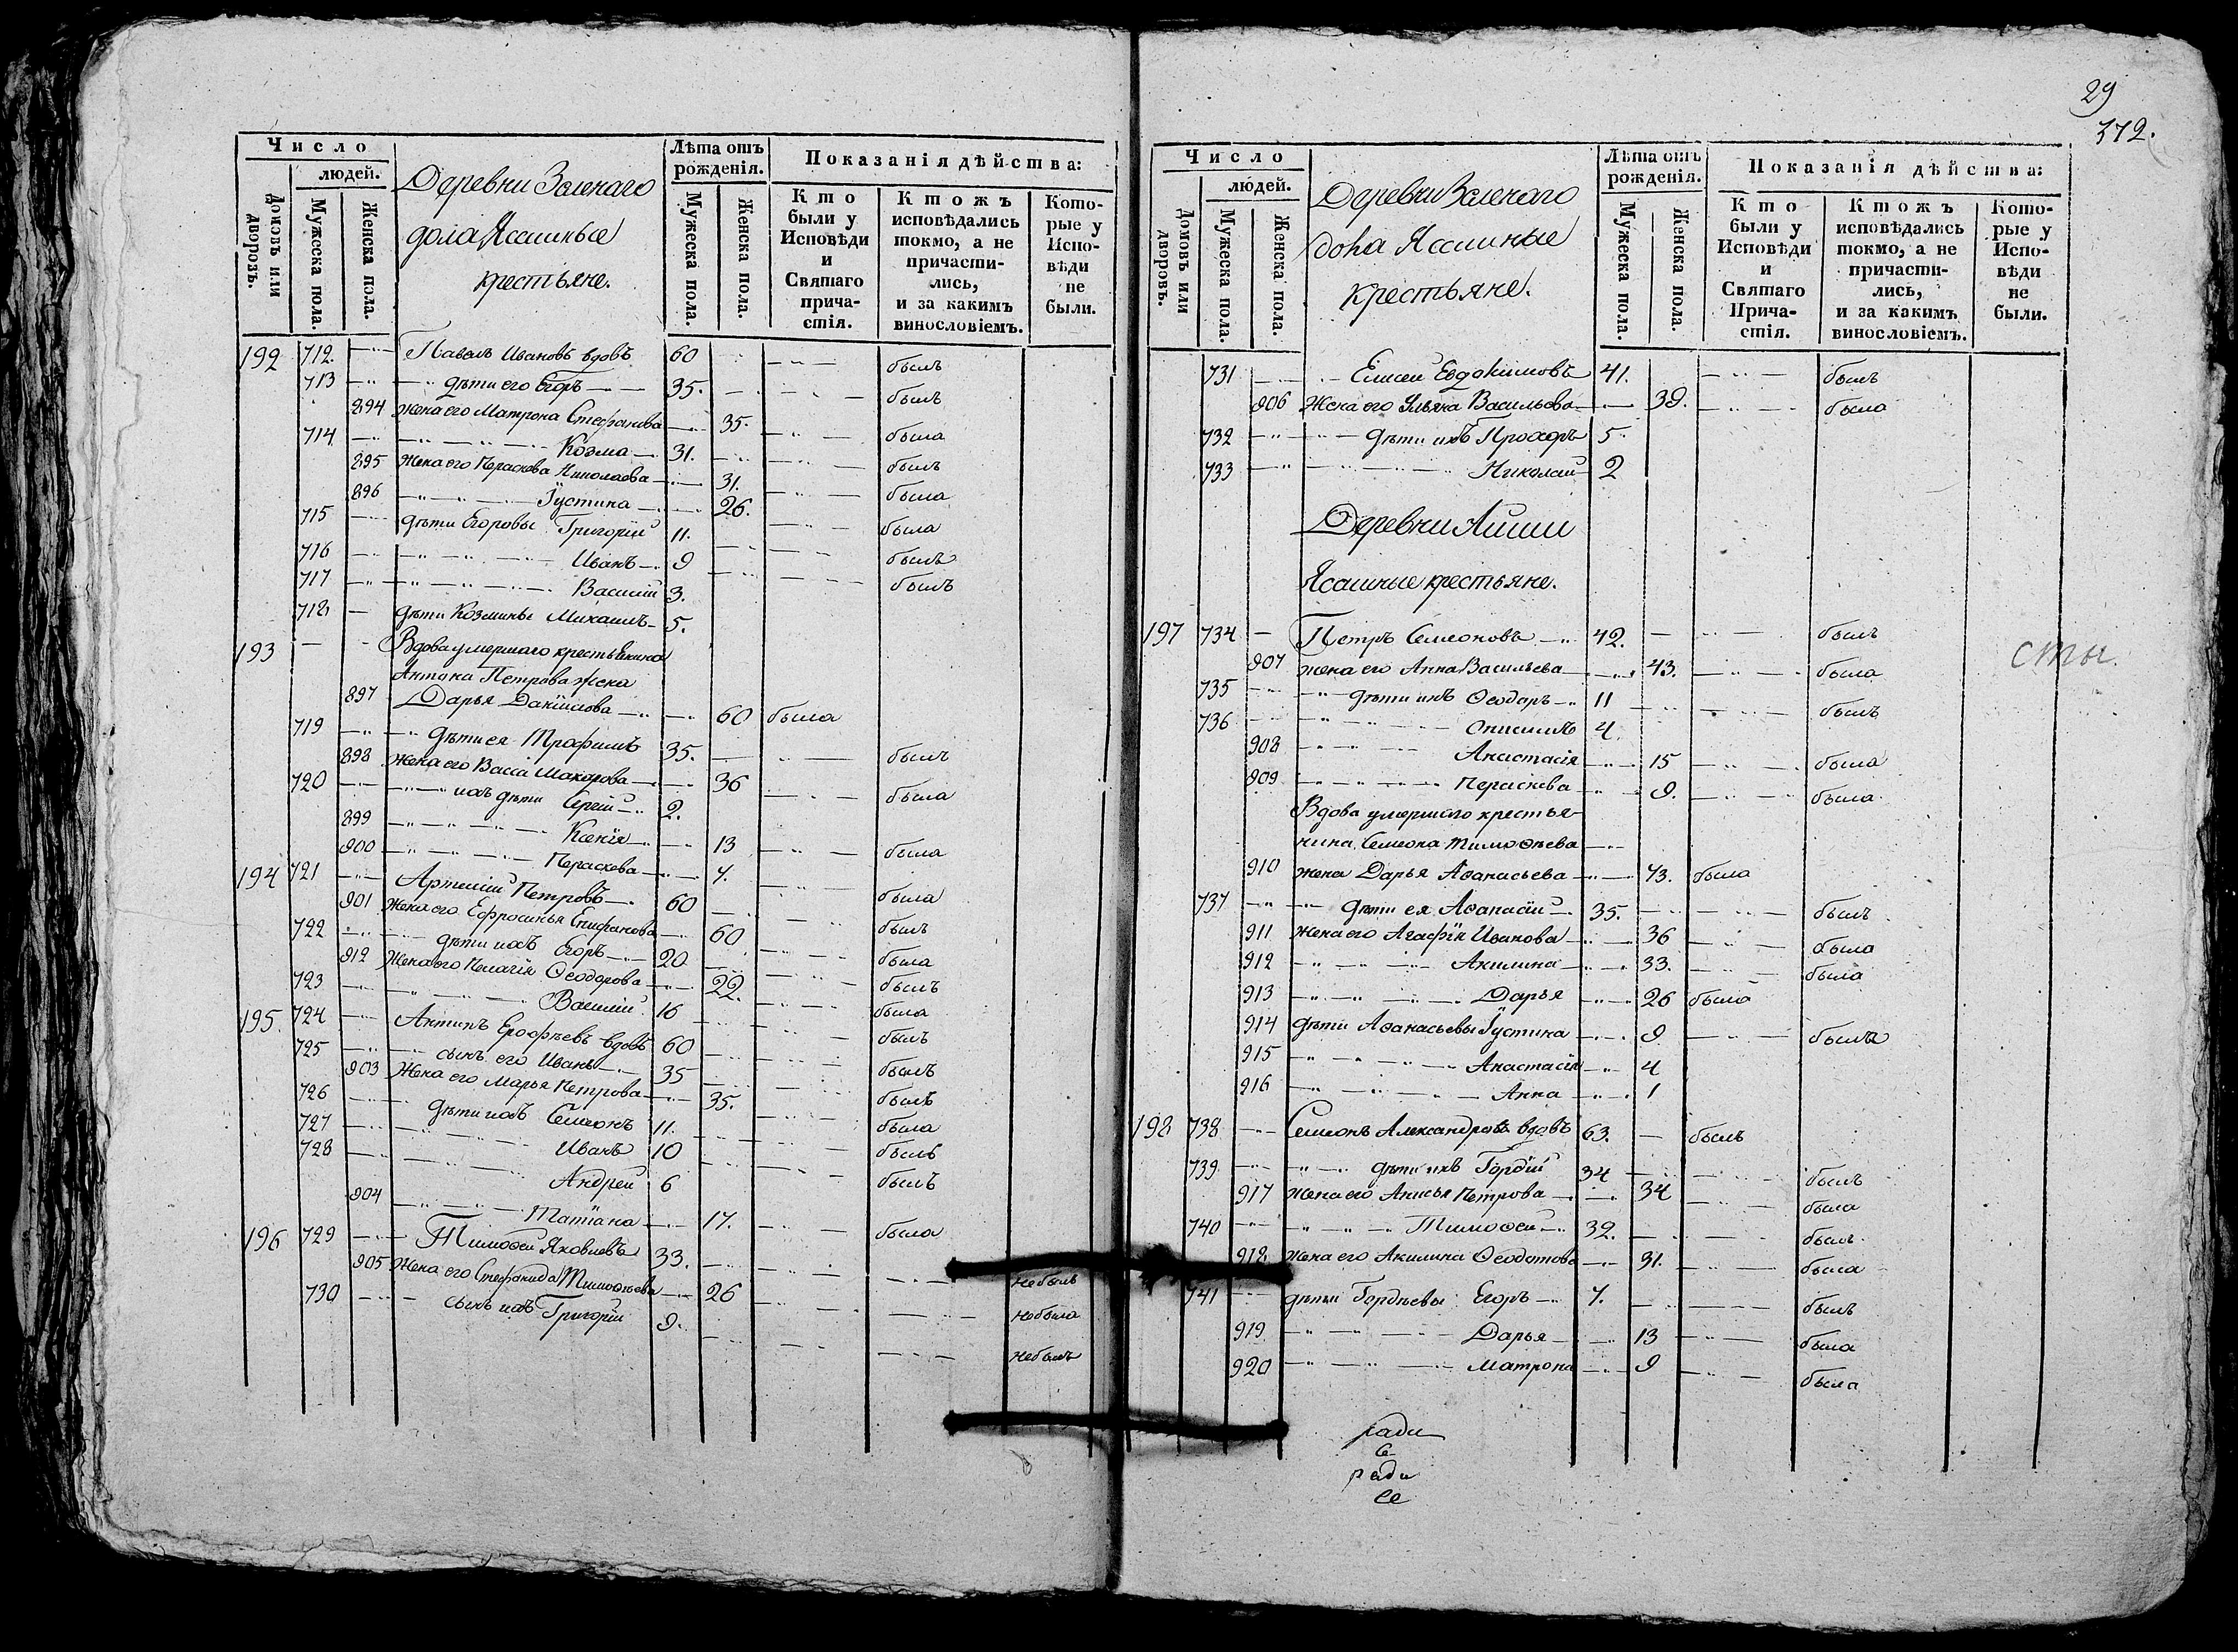 Число
людей.
Домовъ или дворовъ.
Мужеска пола.
Женска пола.
Деревни Зеленаго
дола Ясашные
крестьяне.
Лѣта отъ рожденія.
Мужеска пола.
Женска пола.
Показанія дѣйства:
Кто были у Исповѣди и Святаго причастія.
Ктожъ исповѣдались токмо, а не причастились, и за какимъ винословіемъ.
Которые у Исповѣди не были.
192 712. Павелъ Ивановъ вдовъ 60 былъ
713 дѣти его Егоръ 35. былъ
894 жена его Матрона Стефанова 35. была
714 Козма 31. былъ
895 жена его Пераскова Николаева 31. была
896 Іустина 26. была
715 дѣти Егоровы Григорій 11. былъ
716 Иванъ 9 былъ
717 Василій 3.
718 дѣти Козмины Михаилъ 5.
193 Вдова умершаго крестьянина
Антона Петрова жена
897 Дарья Даніилова 60 была
719 дѣти ея Трофимъ 35. былъ
898 жена его Васса Макарова 36 была
720 ихъ дѣти Сергій 2.
899 Ксенія 13 была
900 Пераскева 7. была
194 721 Артемій Петровъ 60 былъ
901 жена его Ефросинья Епифанова 60 была
722 дѣти ихъ Егоръ 20 былъ
912 Жена его Пелагія Ѳеодорова 22. была
723 Василій 16 былъ
195. 724 Антипъ Ерофѣевъ вдовъ 60 былъ
725 сынъ его Иванъ 35 былъ
903 Жена его Марья Петрова 35. была
726 дѣти ихъ Семеонъ 11. былъ
727 Иванъ 10 былъ
728 Андрей 6
904 Татіана 17. была
196 729 Тимоѳей Яковлевъ 33. небылъ
905 Жена его Стефанида Тимоѳеева 26 небыла
730 сынъ ихъ Григорій 9. небылъ
29
372.
Число
людей.
Домовъ или дворовъ.
Мужеска пола.
Женска пола.
Деревни Зеленаго
дола Ясашные
крестьяне.
Лѣта отъ рожденія.
Мужеска пола.
Женска пола.
Показанія дѣйства:
Кто были у Исповѣди и Святаго Причастія.
Ктожъ исповѣдались токмо, а не причастились, и за какимъ винословіемъ.
Которые у Исповѣди не были.
731 Елисей Евдокимовъ 41. былъ
906 Жена его Ульяна Васильева 39. была
732 дѣти ихъ Прохоръ 5.
733 Николай 2
Деревни Аиши
Ясашные крестьяне.
197 734 Петръ Семеоновъ 42. былъ
907 жена его Анна Васильева 43. была
735 дѣти ихъ Ѳеодоръ 11 былъ
736 Онисимъ 4.
908 Анастасія 15 была
909 Пераскева 9. была
Вдова умершаго крестья-
нина Семеона Тимоѳеева
910 жена Дарья Аѳанасьева 73. была
737 дѣти ея Аѳанасій 35. былъ
911 жена его Агафія Иванова 36 была
912 Акилина 33. была
913 Дарья 26 была
914 дѣти Аѳанасьевы Іустина 9 была
915 Анастасія 4
916 Анна 1
198 738 Семеонъ Александровъ вдовъ 63. былъ
739 дѣти ихъ Гордій 34 былъ
917 жена его Анисья Петрова 34 была
740 Тимоѳей 32. былъ
918 жена его Акилина Ѳеодотова 31. была
741 дѣти Гордѣевы Егоръ 7. былъ
919 Дарья 13 была
920 Матрона 9 была
ради
се
ради
се